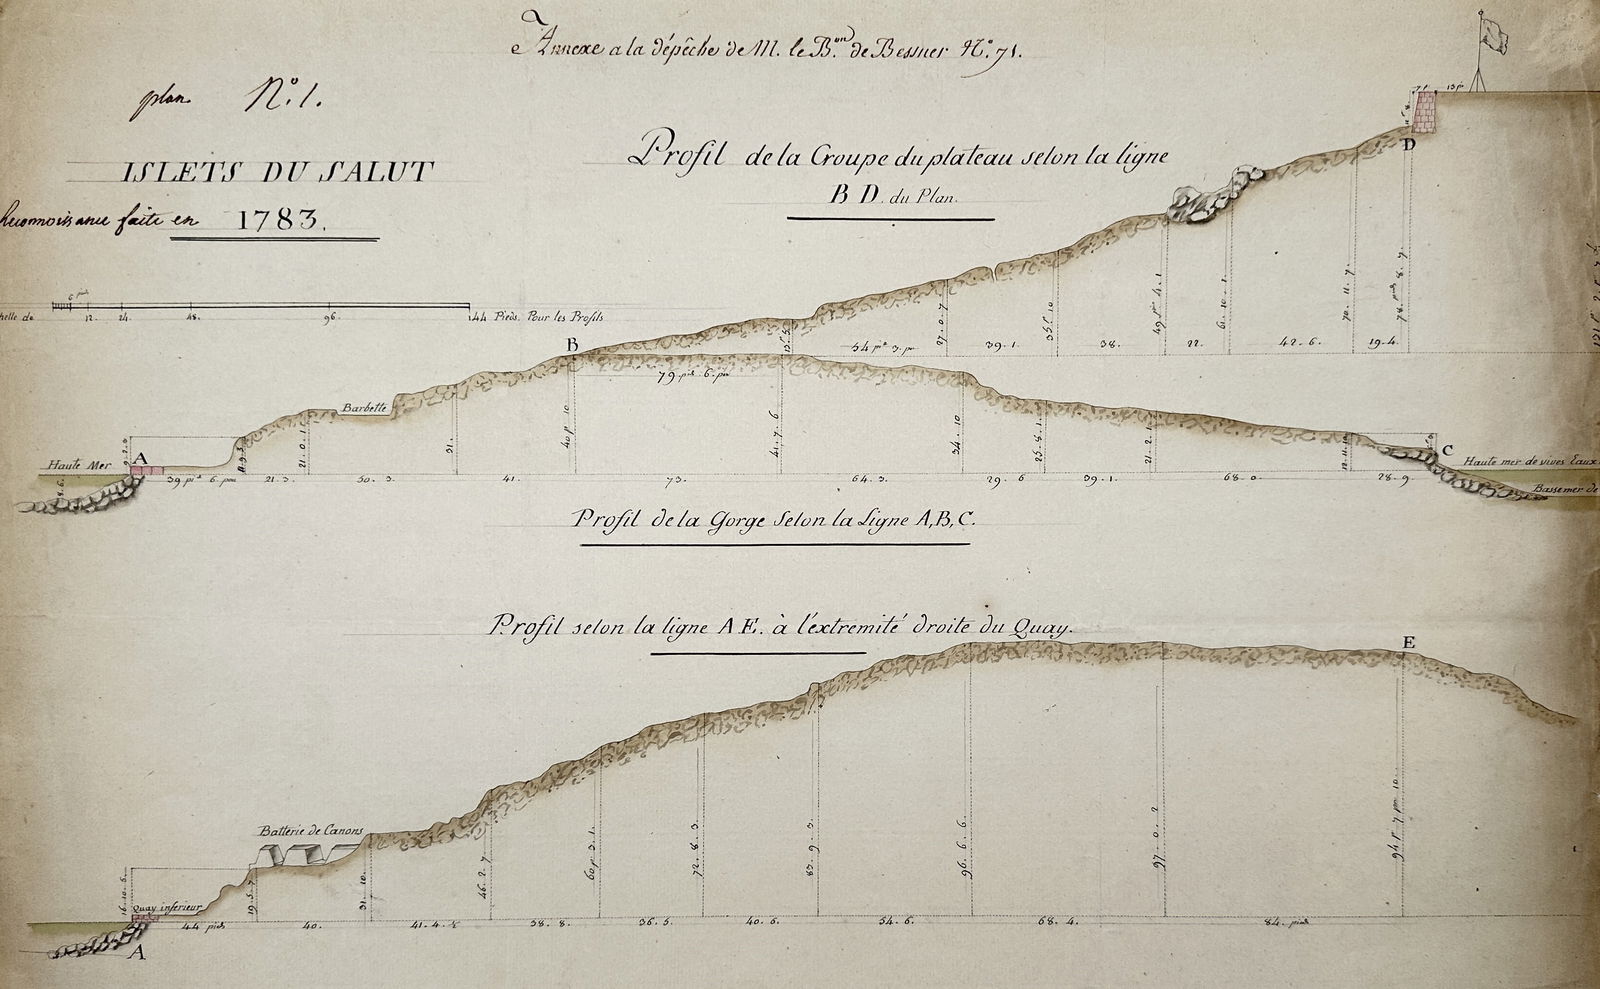 Annexe a la dépêche de M. le B.on de Bessner N.o 71.
plan N.o 1.
ISLETS DU SALUT
Reconnoissance faite en 1783.
6 pieds
12. 24. 48. 96. 144 Pieds. Pour les Profils
Profil de la Croupe du plateau selon la ligne
B D. du Plan.
D
B
27. 0. 7
35. P. 10
49 P. 4. 1
61. 10. 1
70. 11. 7.
78 pieds 8. 7
39. 1. 38. 22. 42. 6. 19. 4.
79 pieds 6. po
Barbette
Haute Mer
A
21. 0. 1
31.
40 P. 10
41. 7. 6
34. 10
21. 2. 1
C
Haute mer de vives Eaux
Basse mer de
39 pi.d 6. pou 21. 3. 50. 3. 41. 73. 64. 3. 29. 6 39. 1. 68. 0. 28. 9.
Profil de la Gorge Selon la Ligne A, B, C.
Profil selon la ligne A E. à l'extremité droite du Quay.
E
Batterie de Canons
Quay inferieur
16. 10. 6.
19. 5. 7
31. 10.
46. 2. 7
60 P. 3. 1.
72. 8. 3.
83. 9. 3.
96. 6. 6.
97. 0. 2
94 P. 7 po 10
44 pieds 40. 41. 4. ½ 38. 8. 36. 5. 40. 6. 54. 6. 68. 4. 84. pieds
A